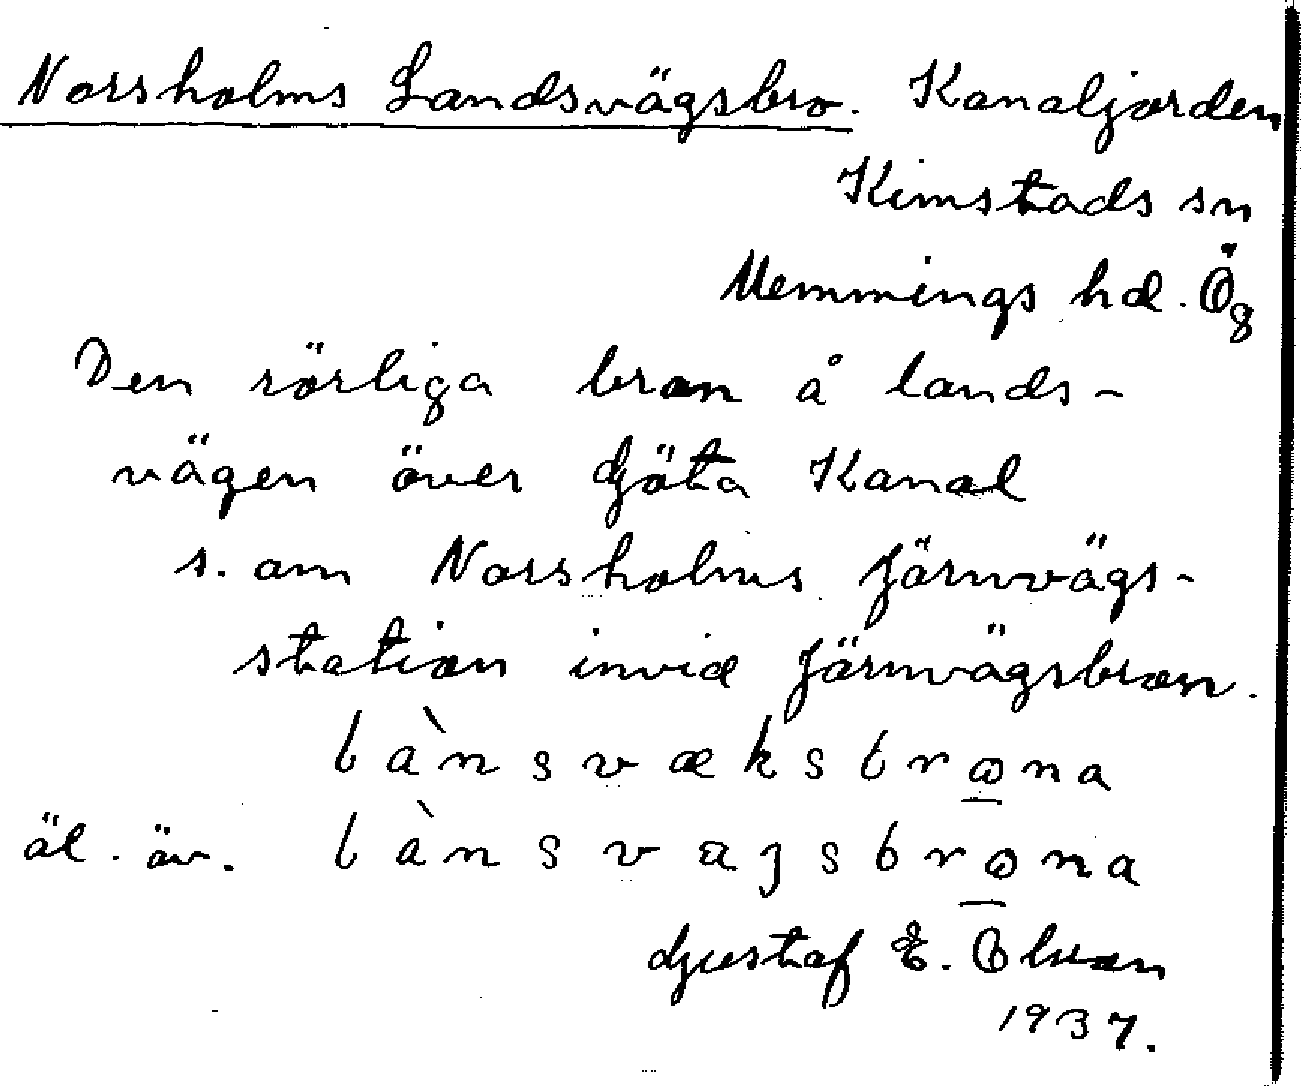 Norsholms Landsvägsbro. Kanaljorden
Kimstads sn
Memmings hd. Ög
Den rörliga bron å lands-
vägen över Göta Kanal
s. om Norsholms Järnvägs-
station invid Järnvägsbron.
lànsvæksbrɷna
äl. äv. lànsvagsbrɷna
Gustaf E. Olson
1937.